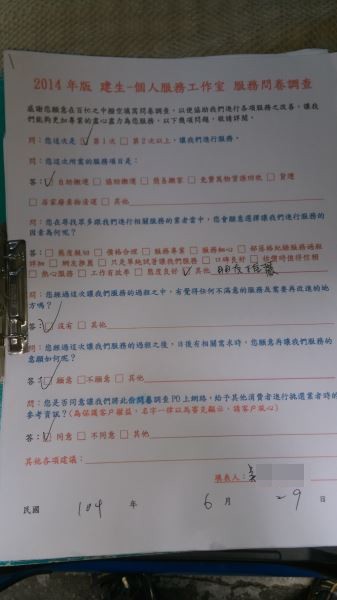 2014 年版 建生-個人服務工作室 服務問卷調查
感謝您願意在百忙之中撥空填寫問卷調查，以便協助我們進行各項服務之改善，讓我
們能夠更加專業的盡心盡力為您服務，以下幾項問題，敬請詳閱。
問：您這次是 ☑ 第1次 □ 第2次以上，讓我們進行服務。
問：您這次所需的服務項目是：
答：☑ 自助搬運 □ 協助搬運 □ 簡易搬家 □ 免費萬物資源回收 □ 貨運
□ 居家廢棄物清運 □ 其他
問：您在尋找眾多跟我們進行相關服務的業者當中，您會願意選擇讓我們進行服務的
因素為何呢？
答：□ 態度親切 □ 價格合理 □ 服務專業 □ 服務細心 □ 部落格紀錄服務過程
詳細 □ 網友推薦 □ 只是單純試著讓我們服務 □ 口碑良好 □ 估價時值得信賴
□ 熱心服務 □ 工作有效率 □ 態度良好 ☑ 其他 朋友推薦
問：您經過這次讓我們服務的過程之中，有覺得任何不滿意的服務及需要再改進的地
方嗎？
答：☑ 沒有 □ 其他
問：您經過這次讓我們服務的過程之後，日後有相關需求時，您願意再讓我們服務的
意願如何呢？
答：☑ 願意 □ 不願意 □ 其他
問：您是否同意讓我們將此份問卷調查 PO 上網路，給予其他消費者進行挑選業者時的
參考資訊？(為保護客戶權益，名字一律以馬賽克顯示，請客戶放心)
答：☑ 同意 □ 不同意 □ 其他
其他各項建議：
填表人：
民國 104 年 6 月 29 日